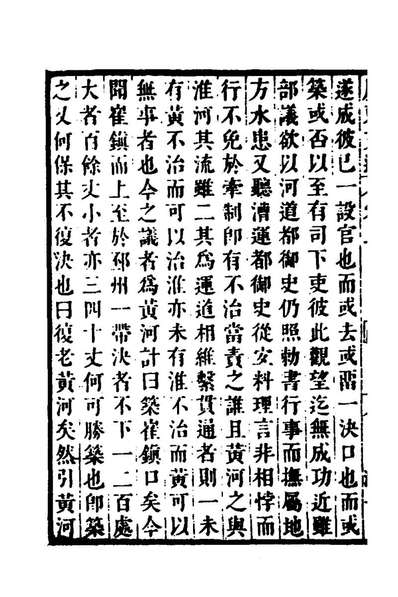 遂成彼已一設官也而或去或畱一決口也而或
築或否以至有司下吏彼此觀望迄無成功近雖
部議欲以河道都御史仍照勅書行事而撫屬地
方水患又聽漕運都御史從安料理言非相悖而
行不免於牽制卽有不治當責之誰且黃河之與
淮河其流雖二其爲運道相維繫貫通者則一未
有黃不治而可以治淮亦未有淮不治而黃可以
無事者也今之議者爲黃河計曰築崔鎮口矣今
聞崔鎮而上至於邳州一帶決者不下一二百處
大者百餘丈小者亦三四十丈何可勝築也卽築
之又何保其不復决也曰復老黃河矣然引黃河